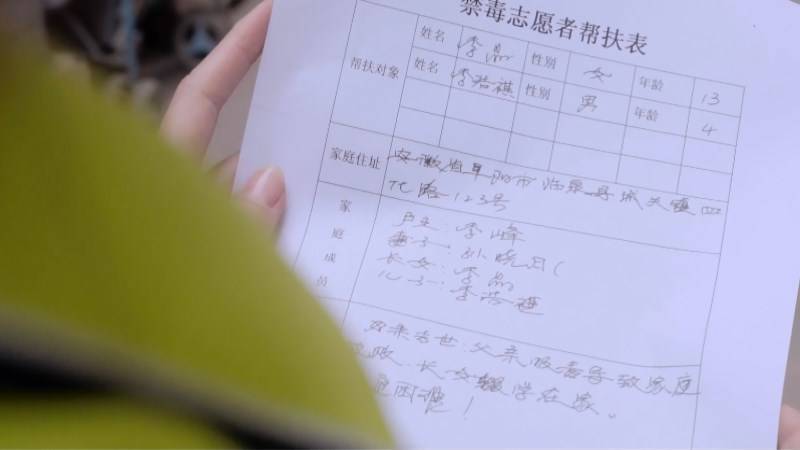 禁毒志愿者帮扶表
帮扶对象 姓名 李磊 性别 女 年龄 13
姓名 李浩祺 性别 男 年龄 4
家庭住址 安徽省阜阳市临泉县城关镇四
化路123号
家庭成员
户主：李峰
妻子：孙晓
长女：李磊
儿子：李浩祺
去世．父亲吸毒导致家庭
长女辍学在家。
困难！